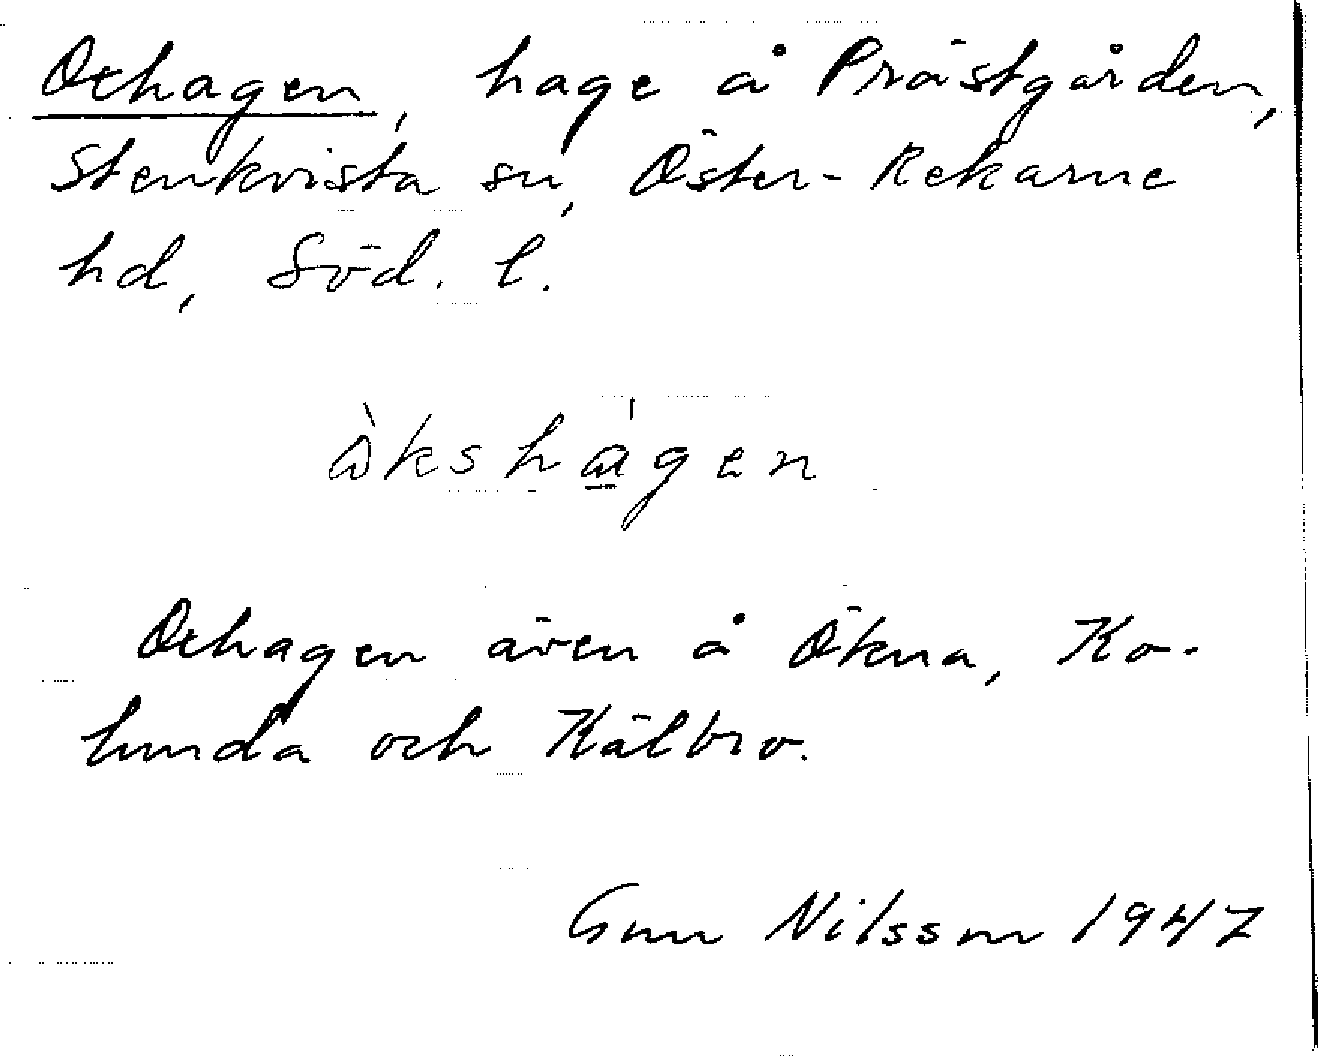 Oxhagen, hage å Prästgården,
Stenkvista sn, Öster-Rekarne
hd, Söd. l.
òkshágen
Oxhagen även å Ökna, Ko-
lunda och Kälbro.
Gun Nilsson 1947